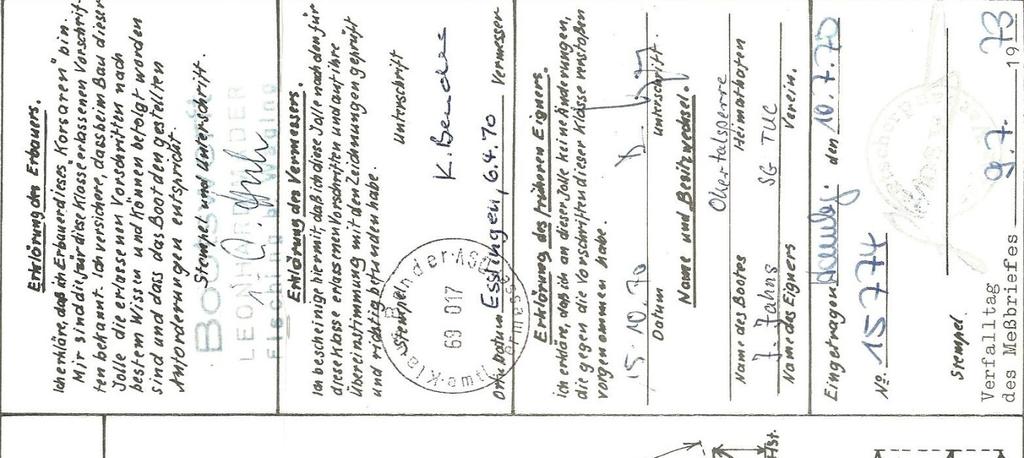 Erklärung des Erbauers.
Ich erkläre, daß ich Erbauer dieses „Korsaren" bin.
Mir sind die, für diese Klasse erlassenen Vorschrif-
ten bekannt. Ich versichere, dass beim Bau dieser
Jolle die erlassenen Vorschriften nach
bestem Wissen und Können befolgt worden
sind und das das Boot den gestellten
Anforderungen entspricht.
Stempel und Unterschrift.
BOOTSWERFT
LEONHARD
Erklärung des Vermessers.
Ich bescheinige hiermit, daß ich diese Jolle nach den für
diese Klasse erlassenen Vorschriften und auf ihre
Übereinstimmung mit den Zeichnungen geprüft
und richtig befunden habe.
Stempel
Unterschrift
69 017
K. Bender
Esslingen, 6.4.70
Ort u. Datum
Vermesser
Erklärung des früheren Eigners.
Ich erkläre, daß ich an dieser Jolle keine Änderungen,
die gegen die Vorschriften dieser Klasse verstoßen
vorgenommen habe.
15.10.70
Datum
Unterschrift.
Name und Besitzwechsel.
Okertalsperre
Name des Bootes
Heimathafen
J. Jahns
SG TUC
Name des Eigners
Verein.
Eingetragen
den 10.7.70
No. 15774
Stempel
Verfalltag
des Meßbriefes 9.7. 1973
Hst.